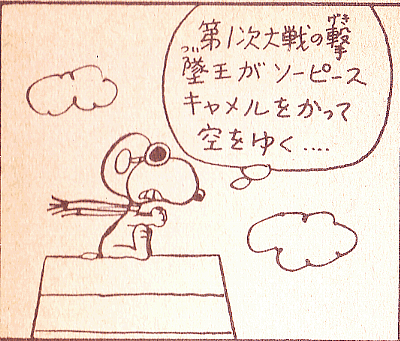 げき
第1次大戦の撃
つい
墜王がソーピース
キャメルをかって
空をゆく....